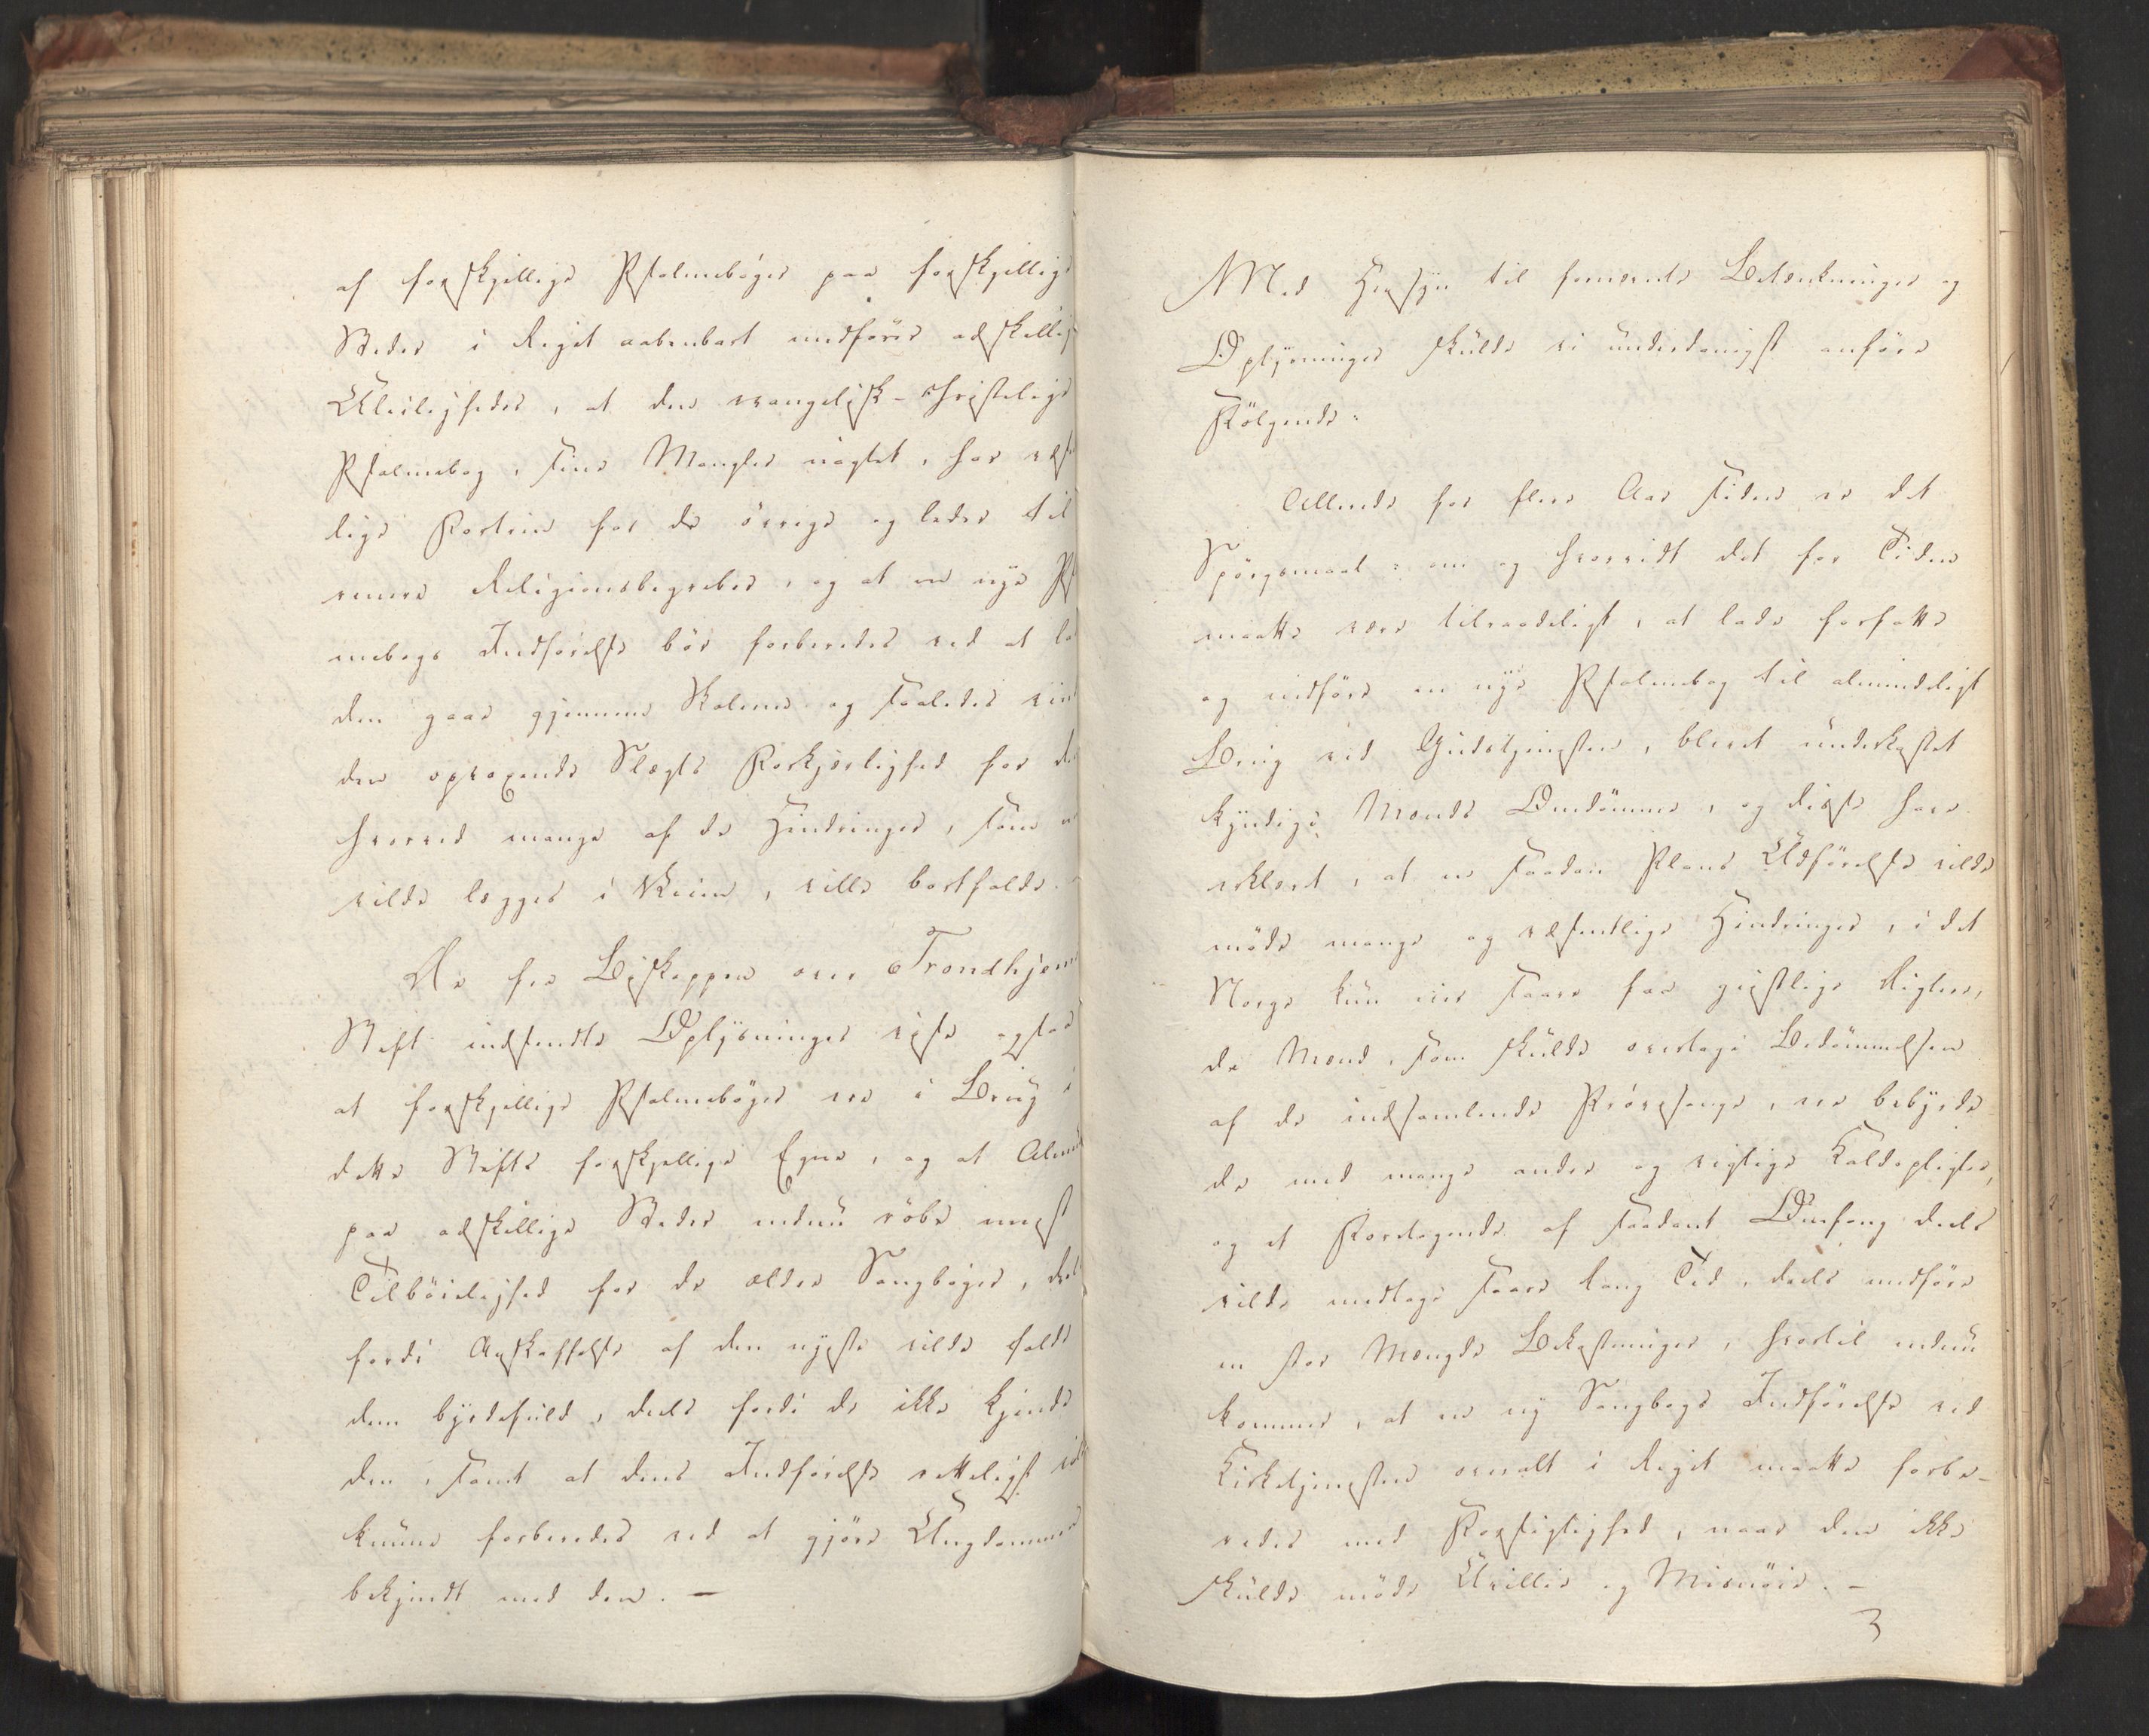 af forskjellige Psalmebøger paa forskjellige
Steder i Riget aabenbart medfører adskellig
Uleiligheder, at den evangelisk-christelige
Psalmebog, sine Mangler uagtet, har
lige Fortrin for de övrige og leder til
renere Religionsbegreber, og at en nye Ps
mebogs Indförelse bör forberedes ved at la
den gaae gjennem Skolerne og saaledes
den opvoxende Slægts Forkjerlighed for de
hvorved mange af de Hindringer, som
vilde lægges i Veien, ville bortfalde.
De fra Biskoppen over Trondhjems
Stift indsendte Oplysninger vise ogsaa
at forskjellige Psalmebøger ere i Brug i
dette Stifts forskjellige Egne, og at Almu
paa adskillige Steder endnu röbe meest
Tilböielighed for de ældre Sangbøger, deels
fordi Anskaffelse af den nyeste vilde falde
dem byrdefuld, deels fordi de ikke kjende
den, samt at dens Indförelse retteligst vil
kunne forberedes ved at gjöre Ungdommen
bekjendt med den. —
Med Hensyn til fornævnte Betænkninger og
Oplysninger skulde vi underdanigst anföre
Fölgende:
Allerede for flere Aar siden er det
Spörgsmaal: om og hvorvidt det for Tiden
maatte være tilraadeligt, at lade forfatte
og indföre en nye Psalmebog til almindeligt
Brug ved Gudstjenesten, blevet underkastet
kyndige Mænds Omdömme, og disse have
erklæret, at en saadan Plans Udförelse vilde
möde mange og væsentlige Hindringer, i det
Norge kun eier faare faa geistlige Digtere,
de Mænd, som skulde overtage Bedömmelsen
af de indsamlende Prövesange, ere bebyrde
de med mange andre og vigtige Kaldspligter,
og et Foretagende af saadant Omfang deels
vilde medtage saare lang Tid, deels medföre
en stor Mængde Bekostninger, hvortil endnu
kommer, at en ny Sangbogs Indförelse ved
Kirketjenesten overalt i Riget maatte forbe-
redes med Forsigtighed, naar den ikke
skulde möde Uvillie og Misnöie. —
3